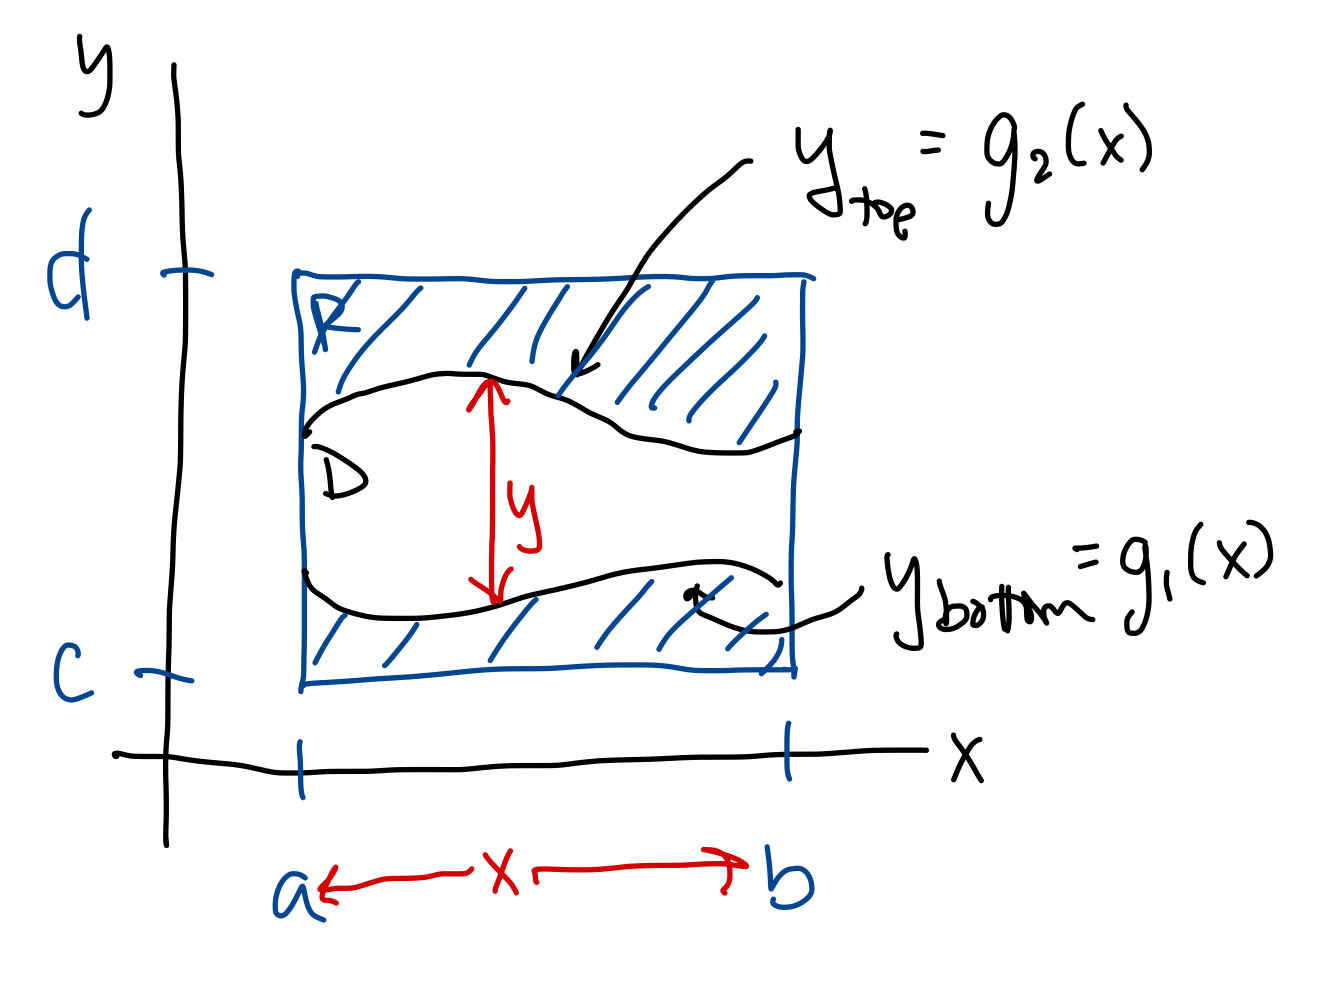 y
y_top = g₂(x)
d
R
D
y
y_bottom = g₁(x)
c
x
a
x
b